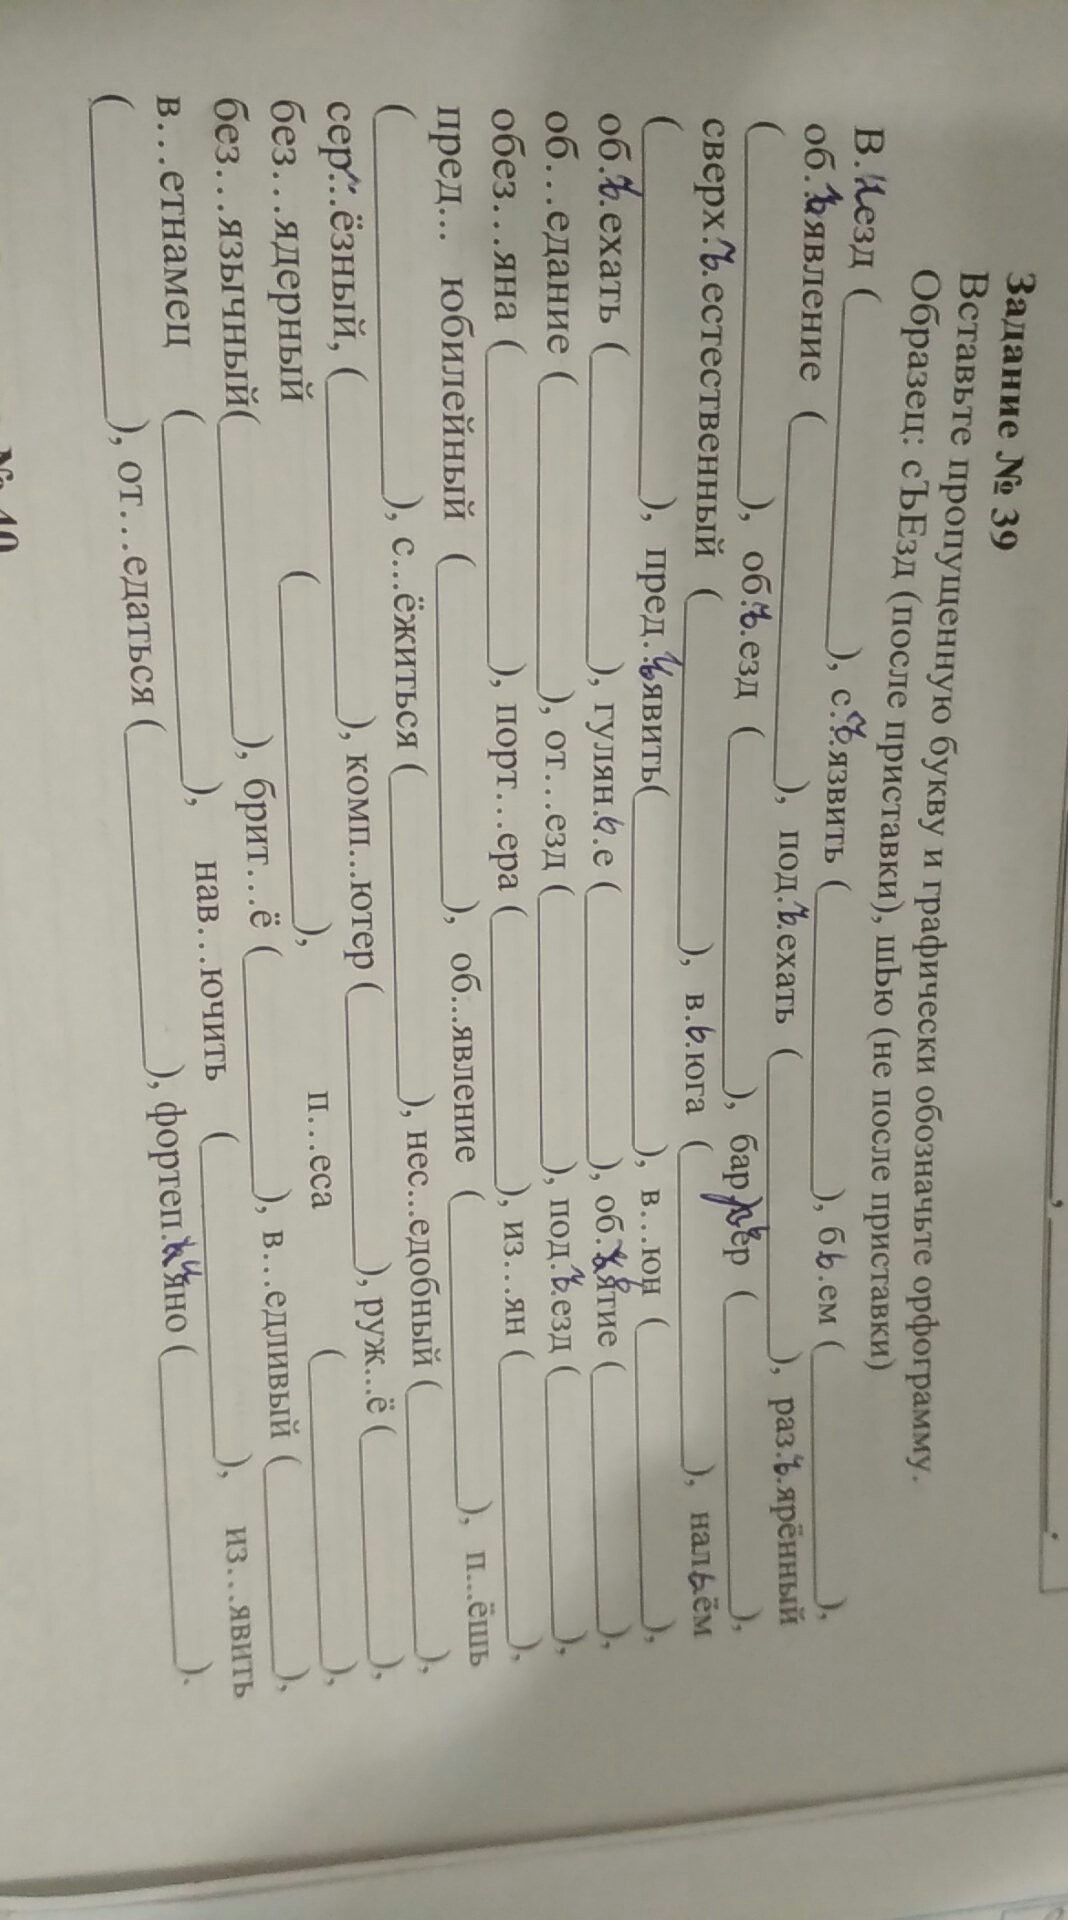 Задание № 39
Вставьте пропущенную букву и графически обозначьте орфограмму.
Образец: сЪЕзд (после приставки), шЬю (не после приставки)
В.ъезд (____), с.ъ.язвить (____), бь.ем (____),
об.ъявление (____), под.ъ.ехать (____), раз.ъ.ярённый
(____), об.ъ.езд (____), барьер (____),
сверх.ъ.естественный (____), в.ь.юга (____), нальём
(____), пред..ъявить(____), в…юн (____),
об.ъ.ехать (____), гулян.ь.е (____), об.ъятие (____),
об…едание (____), от…езд (____), под.ъ.езд (____),
обез…яна (____), порт…ера (____), из…ян (____),
пред… юбилейный (____), об...явление (____), п...ёшь
(____), с...ёжиться (____), нес...едобный (____),
сер...ёзный, (____), комп...ютер (____), руж...ё (____),
без…ядерный (____), п…еса (____),
без…язычный(____), брит…ё (____), в…едливый (____),
в…етнамец (____), нав…ючить (____), из…явить
(____), от…едаться (____), фортеп.ияно (____).
№ 40